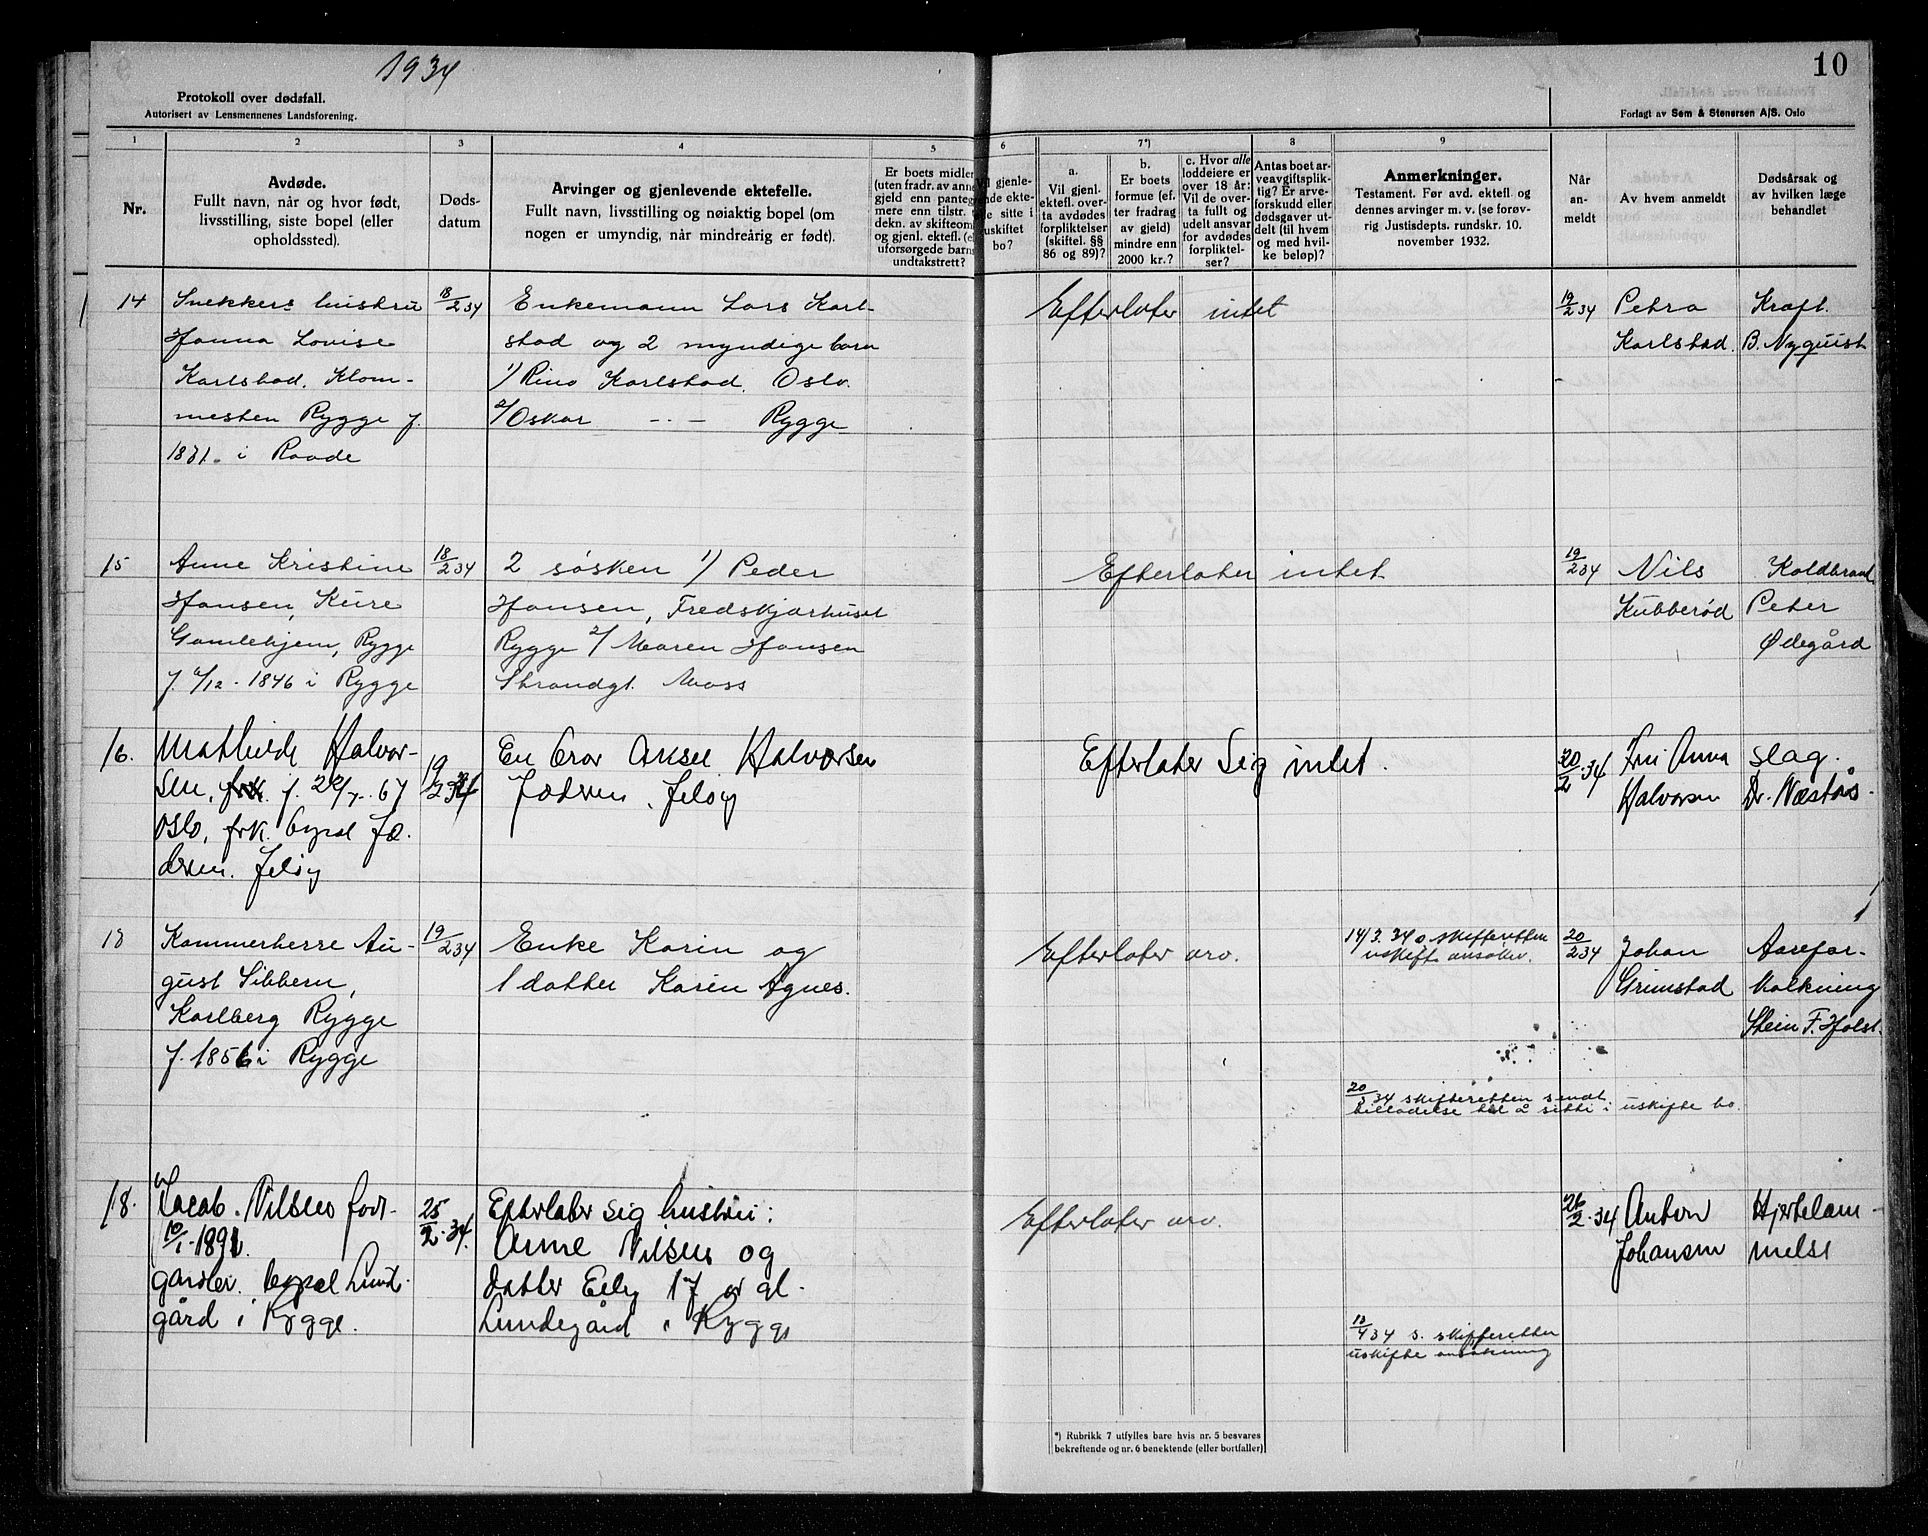 1934
10
Protokoll over dødsfall.
Autorisert av Lensmennenes Landsforening.
Forlagt av Sem & Stenersen A/S. Oslo
1 2 3 4 5 6 7*) 8 9
Nr.
Avdøde.
Fullt navn, når og hvor født,
livsstilling, siste bopel (eller
opholdssted).
Døds-
datum
Arvinger og gjenlevende ektefelle.
Fullt navn, livsstilling og nøiaktig bopel (om
nogen er umyndig, når mindreårig er født).
Er boets midler
(uten fradr. av anne
gjeld enn pantegj
mere enn tilstr. t
dekn. av skifteom
og gjenl. ektefl. (e
uforsørgede barns
undtakstrett?
Vil gjenle-
ende ekte-
le sitte i
uskiftet
bo?
a.
Vil gjenl.
ektefl. over-
ta avdødes
forpliktelser
(skiftel. §§
86 og 89)?
b.
Er boets
formue (ef.
ter fradrag
av gjeld)
mindre enn
2000 kr.?
c. Hvor alle
loddeiere er
over 18 år:
Vil de over-
ta fullt og
udelt ansvar
for avdødes
forpliktel-
ser?
Antas boet ar-
veavgiftsplik-
tig? Er arve-
forskudd eller
dødsgaver ut-
delt (til hvem
og med hvil-
ke beløp)?
Anmerkninger.
Testament. Før avd. ektefl. og
dennes arvinger m. v. (se forøv-
rig Justisdepts. rundskr. 10.
november 1932.
Når
an-
meldt
Av hvem anmeldt
Dødsårsak og
av hvilken læge
behandlet
14
Snekkers hustru
Hanna Lovise
Karlstad. Klom-
mesten Rygge f.
1871. i Raade
18/2 34
Enkemann Lars Karl-
stad og 2 myndige barn
1) Rino Karlstad. Oslo.
2/ Oskar -- - Rygge
Efterlater intet
19/2 34
Petra
Karlstad.
Kræft.
B. Nyquist
15
Anne Kristine
Hansen, Kure
Gamlehjem, Rygge
f. 6/12 - 1846 i Rygge
18/2 34
2 søsken 1) Peder
Hansen, Fredskjærhuset
Rygge 2/ Maren Hansen
Strandgt. Moss
Efterlater intet
19/2 34
Nils
Kubberød
Koldbrand
Peter
Ødegård
16.
Mathilde Halvor-
sen, frk. f. 22/7. 67
Oslo, frk. bopel Jø.
dren. Jeløy
19/2 34
En bror Aksel Halvorsen
Jødren, Jeløy
Efterlater sig intet.
20/2 34
Fru Anna
Halvorsen
Slag.
Dr. Næstås.
18
Kammerherre Au-
gust Sibbern,
Karlberg Rygge
f. 1856 i Rygge
19/2 34
Enke Karin og
1 datter Karen Agnes.
Efterlater arv.
14/3. 34 s. skifteretten
uskift. ansøkn.
20/2 34
Johan
Grimstad
Aarefor-
kalkning
Stein F. Holst.
20/3 34 skifteretten sendt
tilladelse til å sitte i uskifte bo.
18.
Jacob. Nilsen født
10/1-1891.
gårdsar. bopel Lund-
gård i Rygge.
25/2. 34.
Efterlater sig hustru:
Anne Nilsen og
datter Elly 17 år gl.
Lundegård i Rygge
Efterlater arv.
26/2. 34
Anton
Johansen
Hjertelam-
melse
10/4 34 s. skifteretten
uskifte ansøkning
*) Rubrikk 7 utfylles bare hvis nr. 5 besvares
bekreftende og nr. 6 benektende (eller bortfaller)